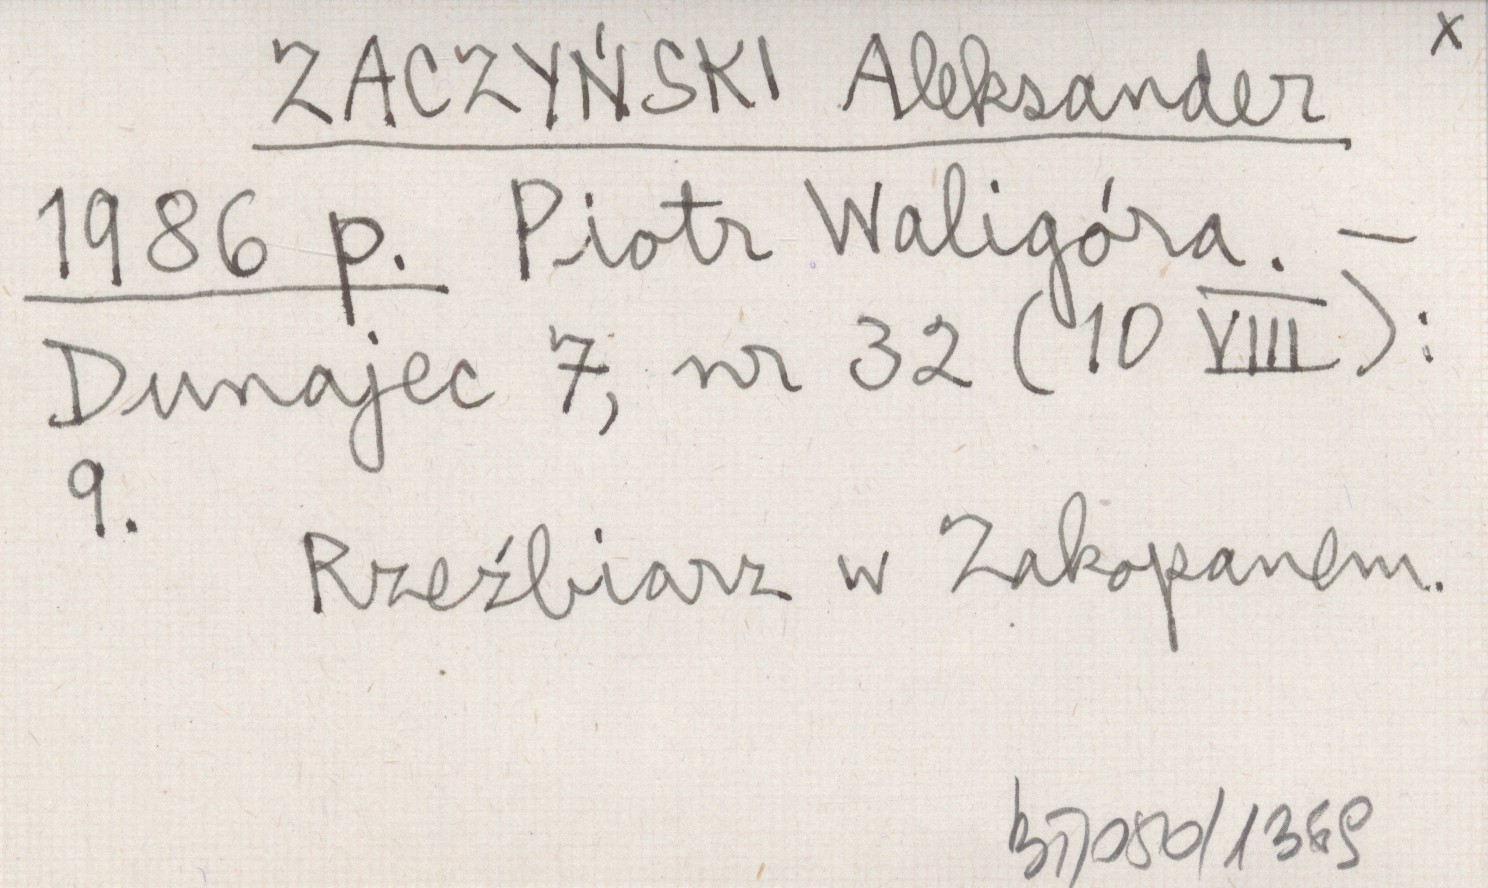 x
ZACZYŃSKI Aleksander
1986 p. Piotr Waligóra. —
Dunajec 7, nr 32 (10 VIII):
9.
Rzeźbiarz w Zakopanem.